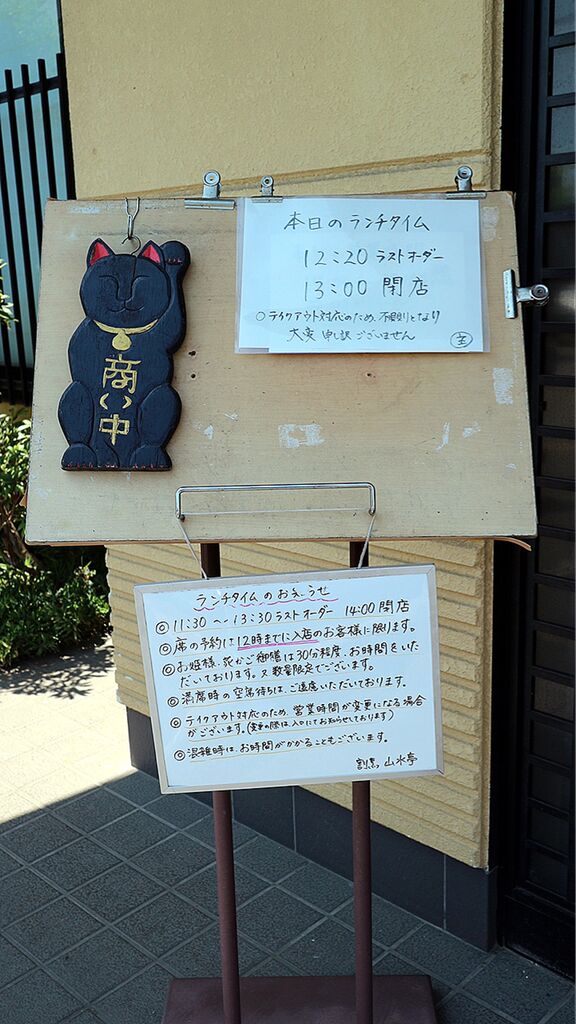 本日のランチタイム
12:20 ラストオーダー
13:00 閉店
○テイクアウト対応のため、不規則となり
大変 申し訳ございません
商い中
ランチタイムのお知らせ
◎11:30 〜 13:30 ラストオーダー 14:00 閉店
◎席の予約は12時までに入店のお客様に限ります。
◎お姫様、花かご御膳は30分程度、お時間をいた
だいております。又 数量限定でございます。
◎満席時の空席待ちは、ご遠慮いただいております。
◎テイクアウト対応のため、営業時間が変更になる場合
がございます。(変更の際は、入口にてお知らせしております)
◎混雑時は、お時間がかかることもございます。
割烹 山水亭